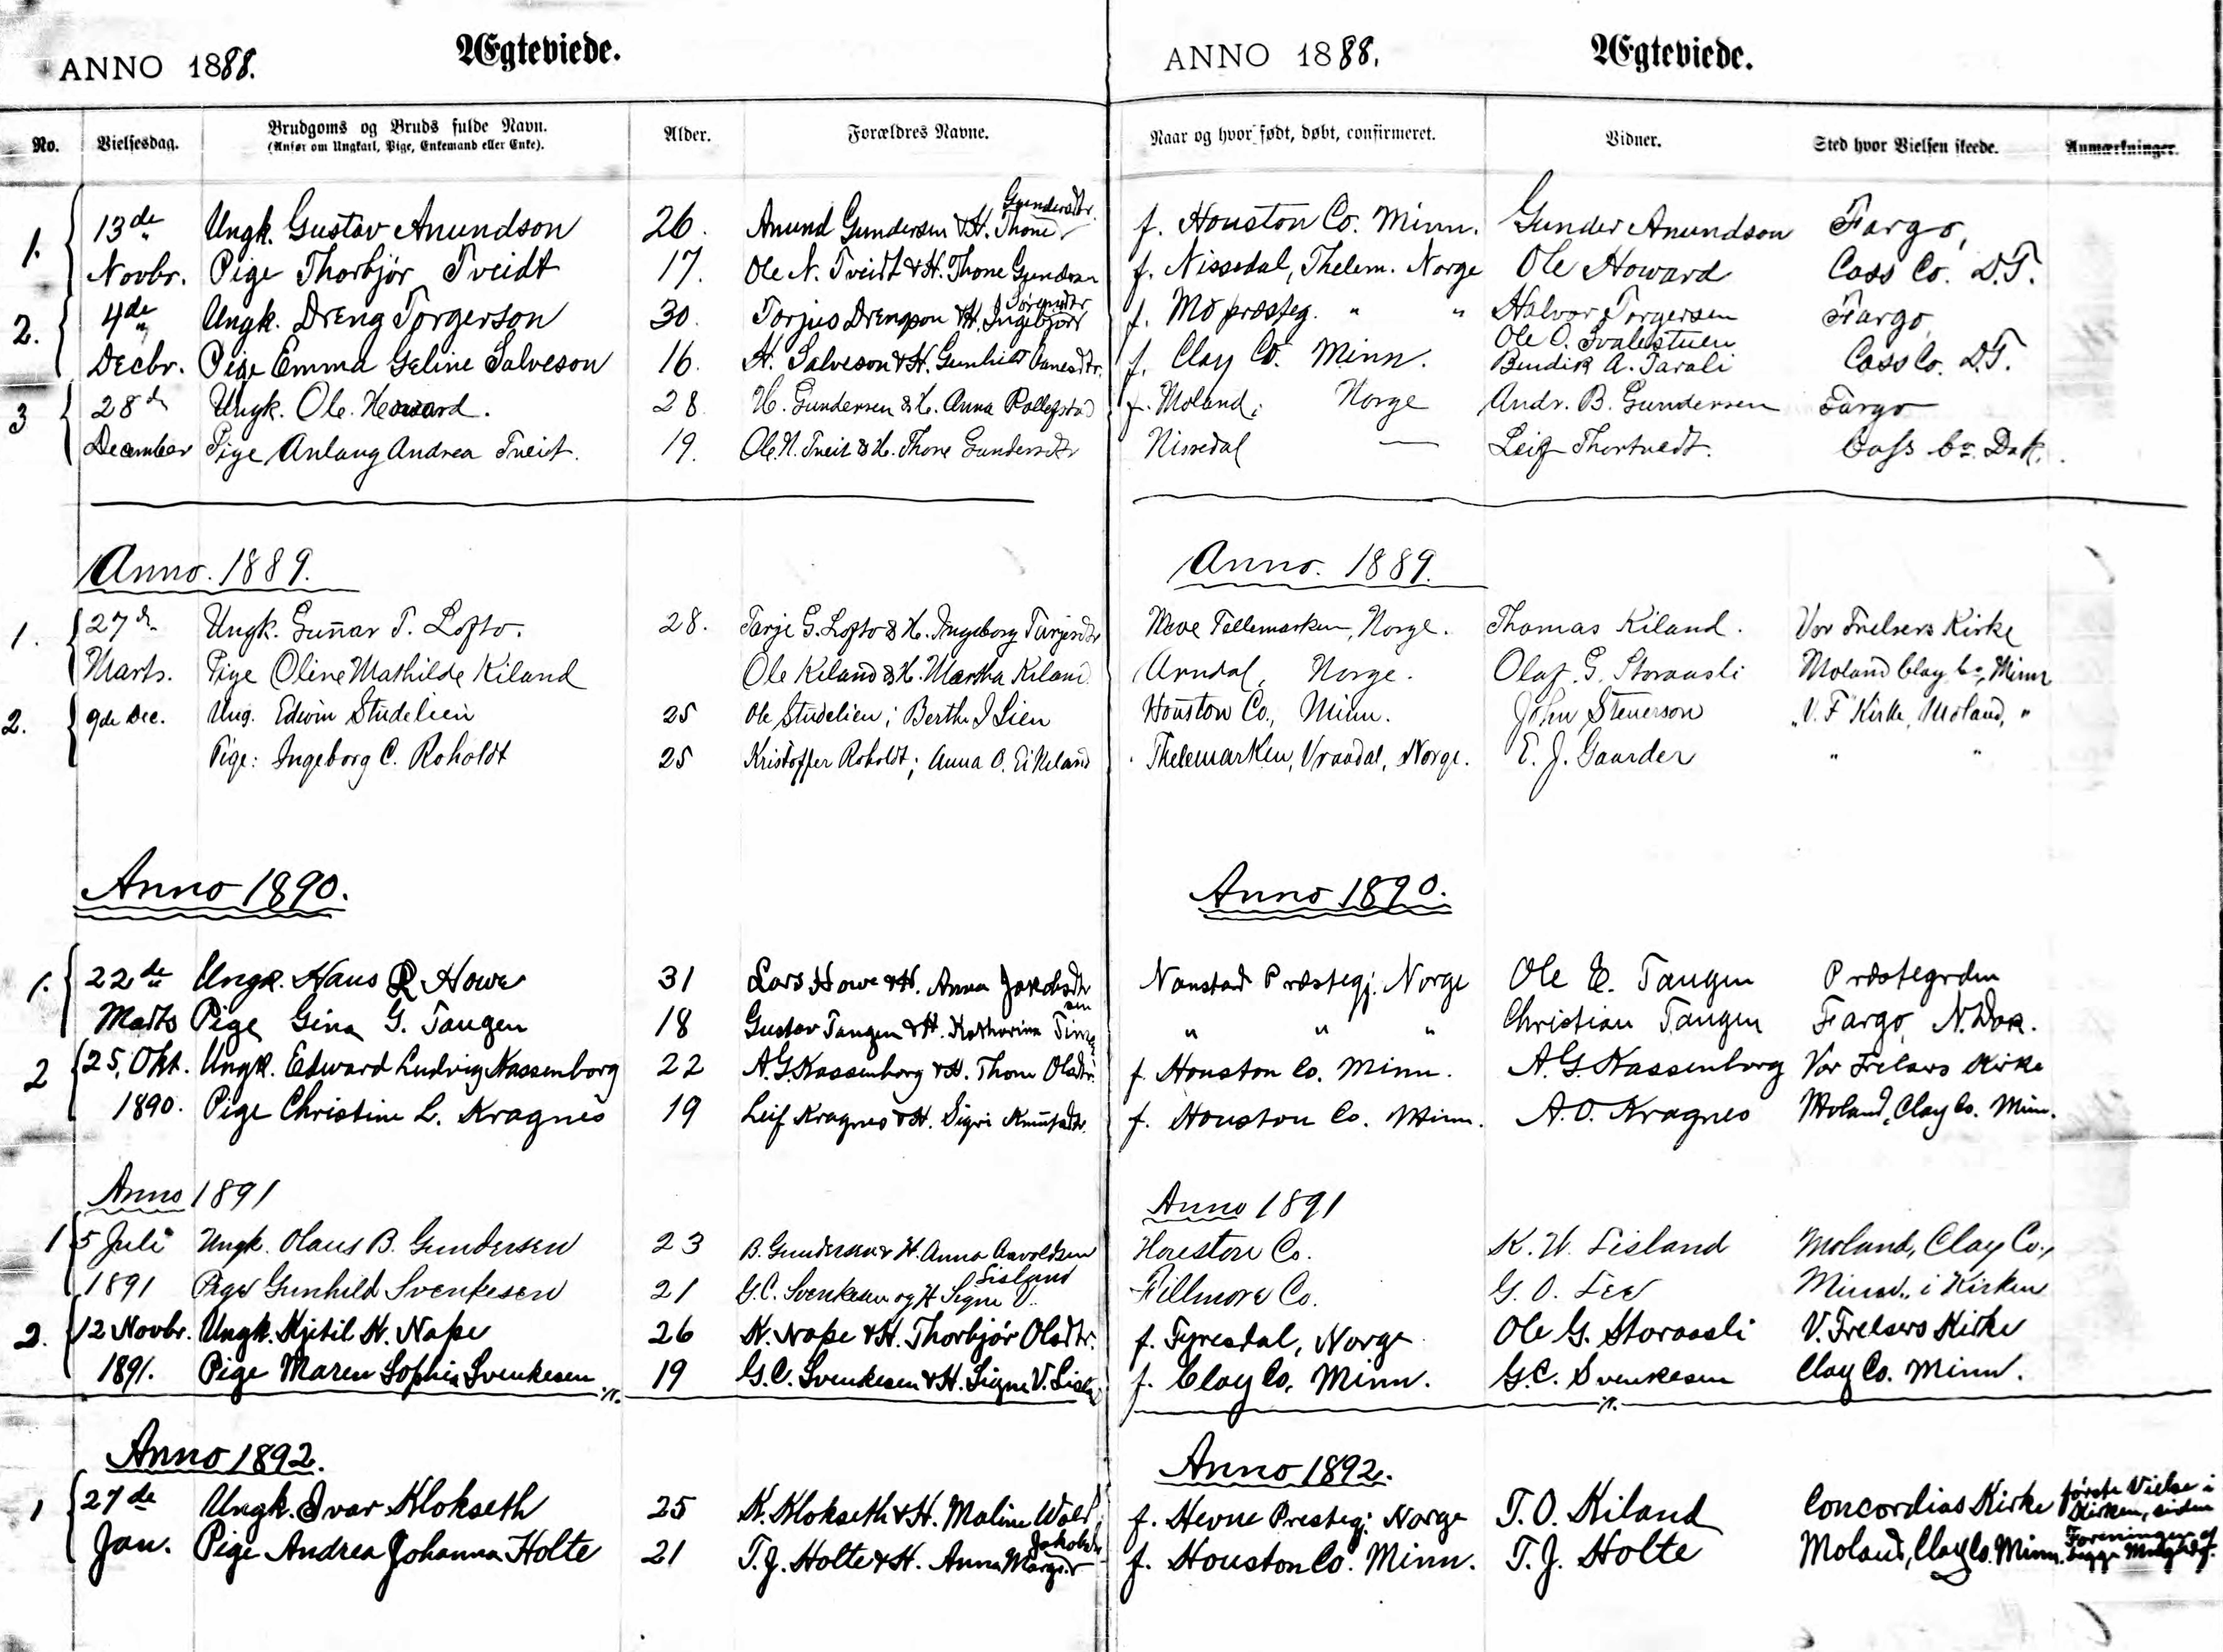 ANNO 1888. Ægteviede.
No. Vielsesdag. Brudgoms og Bruds fulde Navn. Alder. Forældres Navne.
(Anfør om Ungkarl, Pige, Enkemand eller Enke).
Gundersdtr.
1. 13de Ungk. Gustav Anundson 26. Anund Gundersen & H. Thone
Novbr. Pige Thorbjør Tveidt 17. Ole N. Tveidt & H. Thone
2. 4de Ungk. Dreng Torgerson 30. Torjus Drengson & H. Ingebjør
Decbr. Pige Emma Geline Salveson 16. H. Salveson & H. Gunhild
3 28d Ungk. Ole Howard. 28 H. Gundersen & H. Anna
December Pige Anlaug Andrea Tveit. 19. Ole N. Tveit & H. Thone Gundersdtr
Anno. 1889.
1. 27d Ungk. Gunnar T. Lofto. 28. Tarje G. Lofto & H. Ingeborg Tarjesdtr
Marts. Pige Oline Mathilde Kiland Ole Kiland & H. Martha Kiland
2. 9de Dec. Ung. Edwin Studelien 25 Ole Studelien; Berthe I Lien
Pige: Ingeborg C. Roholdt 25 Kristoffer Roholdt; Anna O. Eikeland
Anno 1890.
1. 22de Ungk. Hans R Howe 31 Lars Howe & H. Anna Jakobsdtr
Marts Pige Gina G. Tangen 18 Gustav Tangen & H. Katharina
2 25. Okt. Ungk. Edward Ludvig Kassenborg 22 A. G. Kassenborg & H. Thone Olsdtr.
1890. Pige Christine L. Kragnes 19 Leif Kragnes & H. Sigri Knutsdtr.
Anno 1891
1 5 Juli Ungk. Olaus B. Gundersen 23 B. Gundersen & H. Anna Aavoldsen
Lisland
1891 Pige Gunhild Svenkesen 21 G. C. Svenkesen og H Signe V.
2. 12 Novbr. Ungk. Kjetil K. Nape 26 K. Nape & H. Thorbjør Olsdtr.
1891. Pige Maren Sophia Svenkesen 19 G. C. Svenkesen & H. Signe V.
Anno 1892.
1 27de Ungk. Ivar Klokseth 25 K. Klokseth & H. Maline Wold
Jakobsdtr
Jan. Pige Andrea Johanna Holte 21 T. J. Holte & H. Anna
ANNO 1888. Ægteviede.
Naar og hvor født, døbt, confirmeret. Vidner. Sted hvor Vielsen skeede. Anmærkninger.
f. Houston Co. Minn. Gunder Anundson Fargo,
f. Nissedal, Thelem. Norge Ole Howard Cass Co. D.T.
f. Mo præsteg. " " Halvor Torgersen Fargo,
Ole O. Svalestuen
f. Clay Co. Minn. Bendik A. Tarali Cass Co. D.T.
f. Moland, Norge Andr. B. Gundersen Fargo
Nissedal — Leif Thortvedt. Cass Co. Dak.
Anno. 1889.
Telemarken, Norge. Thomas Kiland. Vor Frelsers Kirke
Arndal, Norge. Olaf G. Storaasli Moland Clay Co, Minn
Houston Co., Minn. John Stenerson V. F Kirke, Moland, "
Thelemarken, Vraadal, Norge. E. J. Gaarder " "
Anno 1890.
Præstegj. Norge Ole E. Tangen Præstegrden
" " " Christian Tangen Fargo, N. Dak.
f. Houston Co. Minn. A. G. Kassenborg Vor Frelsers Kirke
f. Houston Co. Minn. A. O. Kragnes Moland, Clay Co. Minn.
Anno 1891
Houston Co. K. W. Lisland Moland, Clay Co.,
Fillmore Co. G. O. Lee Minn., i Kirken
f. Fyresdal, Norge Ole G. Storaasli V. Frelsers Kirke
f. Clay Co, Minn. G. C. Svenkesen Clay Co. Minn.
Anno 1892.
f. Hevne Presteg. Norge T. O. Kiland Concordias Kirke første Vielse i Kirken, siden
f. Houston Co. Minn. T. J. Holte Moland, Clay Co. Minn. Foreningen af begge